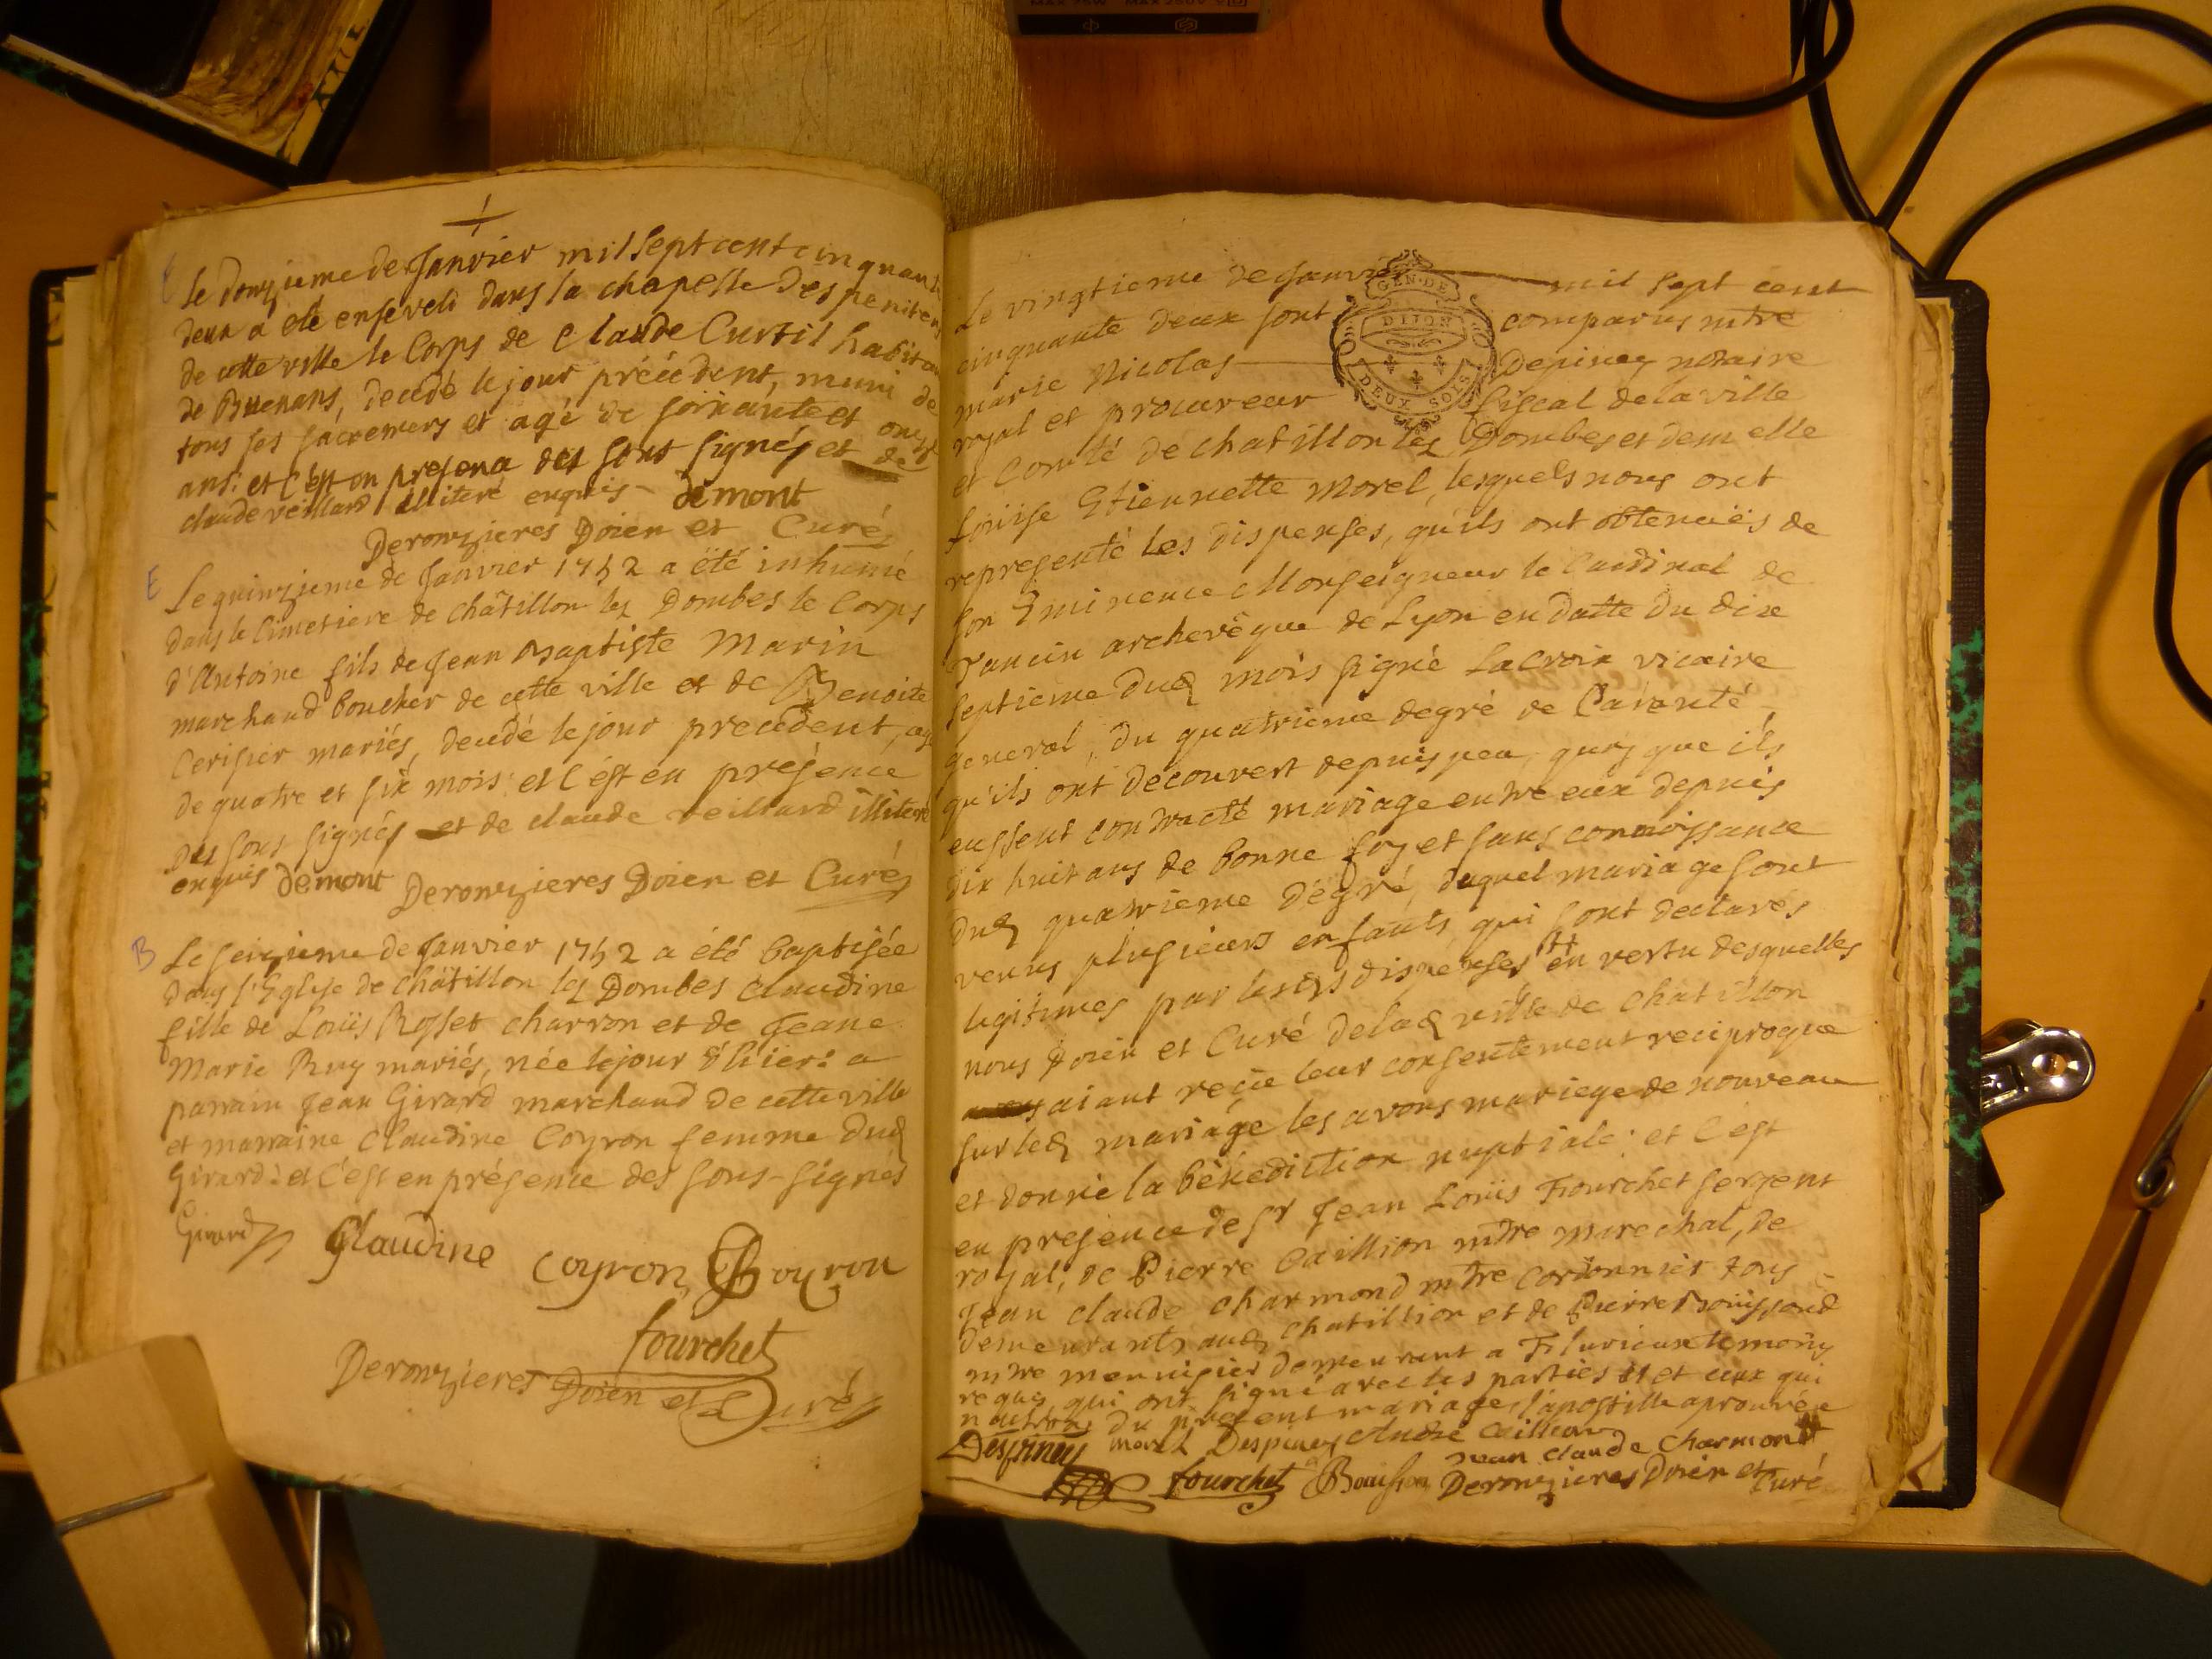 E
Le douzieme de Janvier mil sept cent cinquante
deux a eté enseveli dans la chapelle des peniten
de cette ville le Corps de Claude Curtil habitan
de Buenans, decedé le jour précédent, muni de
tous ses sacremens et agé de soixante et onze
ans: et c'est en presence des sous signés et de
claude veillard illiteré enquis démont
Deronzieres Doien et Curé
E
Le quinzieme de Janvier 1752 a été inhumé
dans le Cimetiere de Châtillon les Dombes le Corps
d'Antoine fils de Jean Baptiste Marin
marchand boucher de cette ville et de Benoite
Cerisier mariés, decedé le jour precedent, agé
de quatre et six mois: et c'est en présence
des sous signés et de claude veillard illiteré
enquis démont Deronzieres Doien et Curé
B
Le seizieme de Janvier 1752 a été baptisée
dans l'Eglise de Châtillon les Dombes Claudine
fille de Loüis Rosset charron et de Jeane
Marie Ruy mariés, née le jour d'hïer: a
parrain Jean Girard marchand de cette ville
et marraine Claudine Coyron femme dud
Girard: et c'est en présence des sous-signés
Girard Claudine Coyron
fourchet
Deronzieres Doien et Curé
Le vingtieme de Janvier mil sept cent
GEN. DE
DIJON
DEUX SOLS
cinquante deux sont comparus mtre
marie Nicolas Depiney notaire
royal et procureur fiscal de la ville
et Comté de chatillon les Dombes et demelle
Loüise Etiennette Morel, lesquels nous ont
representé les dispenses, qu'ils ont obtenuës de
son Eminence Monseigneur le Cardinal de
Tancin archevêque de Lyon en datte du dix
septieme dud mois signé Lacroix vicaire
general, du quatrieme degré de Paranté
qu'ils ont decouvert depuis peu, quoy que ils
eussent contracté mariage entre eux depuis
dix huit ans de bonne foy et sans connoissance
dud quatrieme dégré, duquel mariage sont
venus plusieurs enfants qui sont declarés
legitimes par lesds dispenses # en vertu desquelles
nous Doien et Curé de lad ville de Chatillon
aiant reçüe leur consentement reciproque
sur led mariage les avons mariege de nouveau
et donné la bénédiction nuptiale: et c'est
en presence de Sr Jean Loüis Fourchet sergent
royal, de Pierre Caillion mtre marechal, de
Jean claude Charmond mtre Cordonnier tous
demeurants aud chatillion et de Pierre Bouissond
mtre menuisier demeurant a Fluvieux temoins
requis qui ont signé avec les parties et ceux qui
du present mariage, l'apostille aprouvée
Despiney morel Despiney André Caillion
Jean Claude Charmond #
fourchet Bouisson Deronzieres Doien et Curé